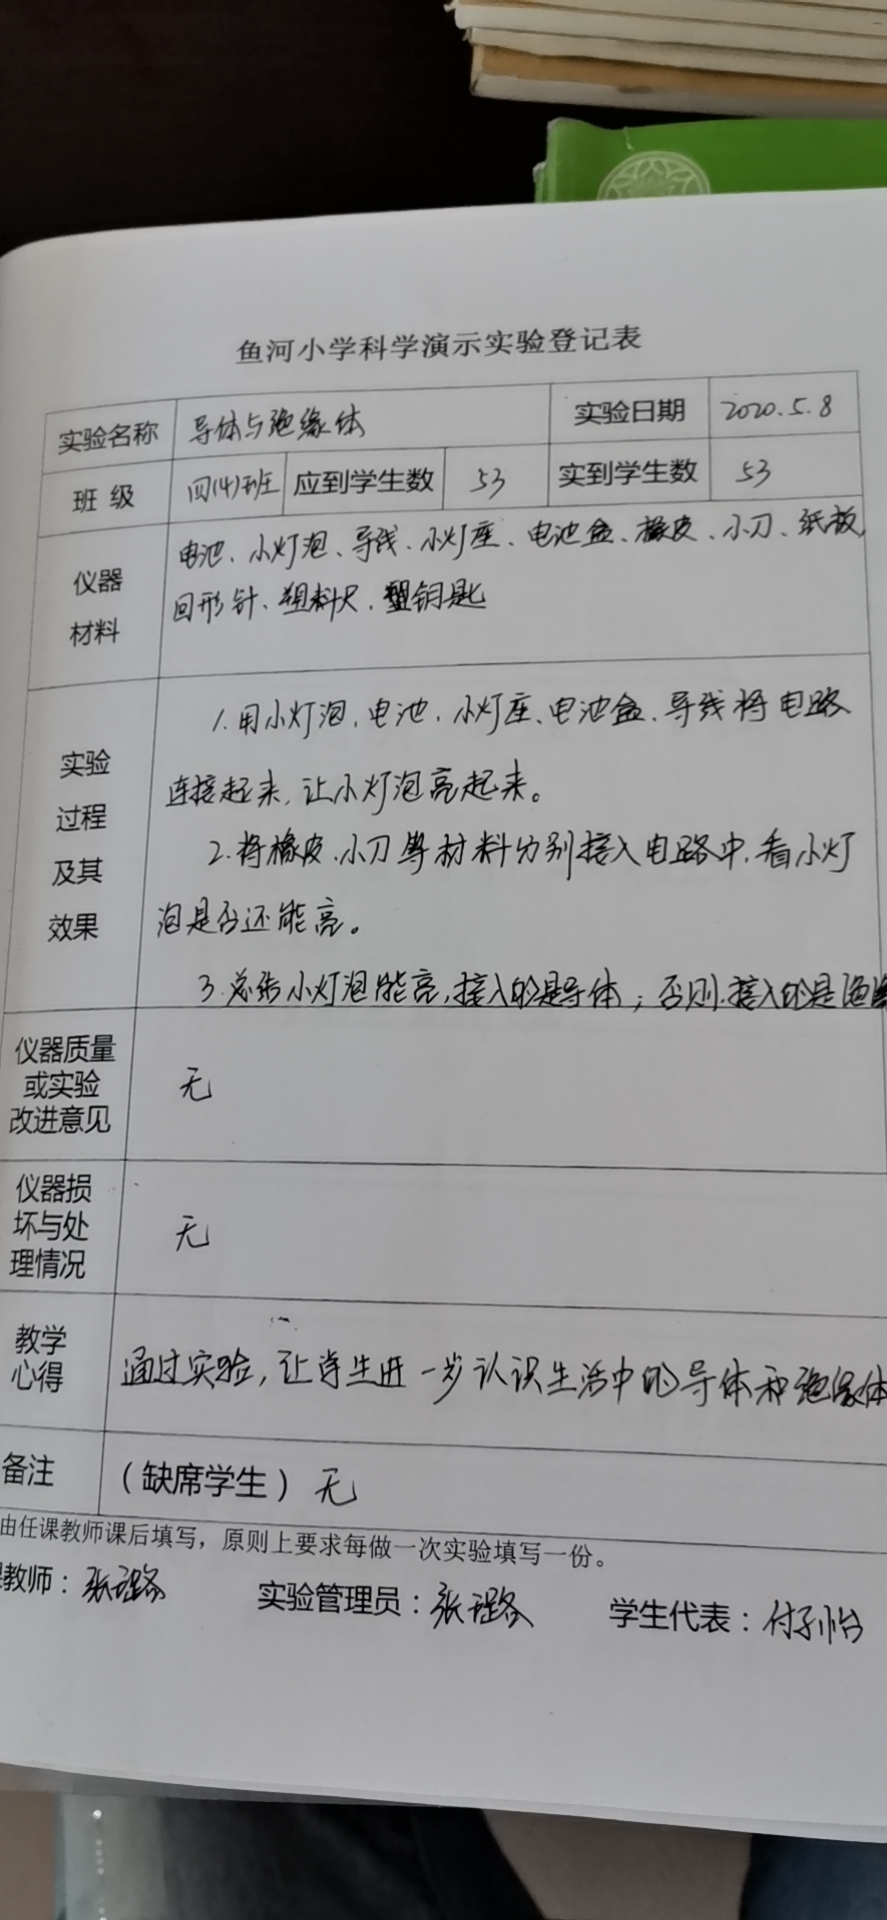 鱼河小学科学演示实验登记表
实验名称 导体与绝缘体 实验日期 2020.5.8
班 级 四(4)班 应到学生数 53 实到学生数 53
仪器 材料
电池、小灯泡、导线、小灯座、电池盒、橡皮、小刀、纸板、
回形针、塑料尺、钥匙
实验 过程 及其 效果
1.用小灯泡、电池、小灯座、电池盒、导线将电路
连接起来,让小灯泡亮起来。
2.将橡皮、小刀等材料分别接入电路中,看小灯
泡是否还能亮。
3.总结小灯泡能亮,接入的是导体;否则,接入的是绝缘
仪器质量
或实验
改进意见
无
仪器损
坏与处
理情况
无
教学
心得
通过实验,让学生进一步认识生活中的导体和绝缘体
备注 (缺席学生) 无
由任课教师课后填写,原则上要求每做一次实验填写一份。
教师: 张 实验管理员: 张 学生代表: 付